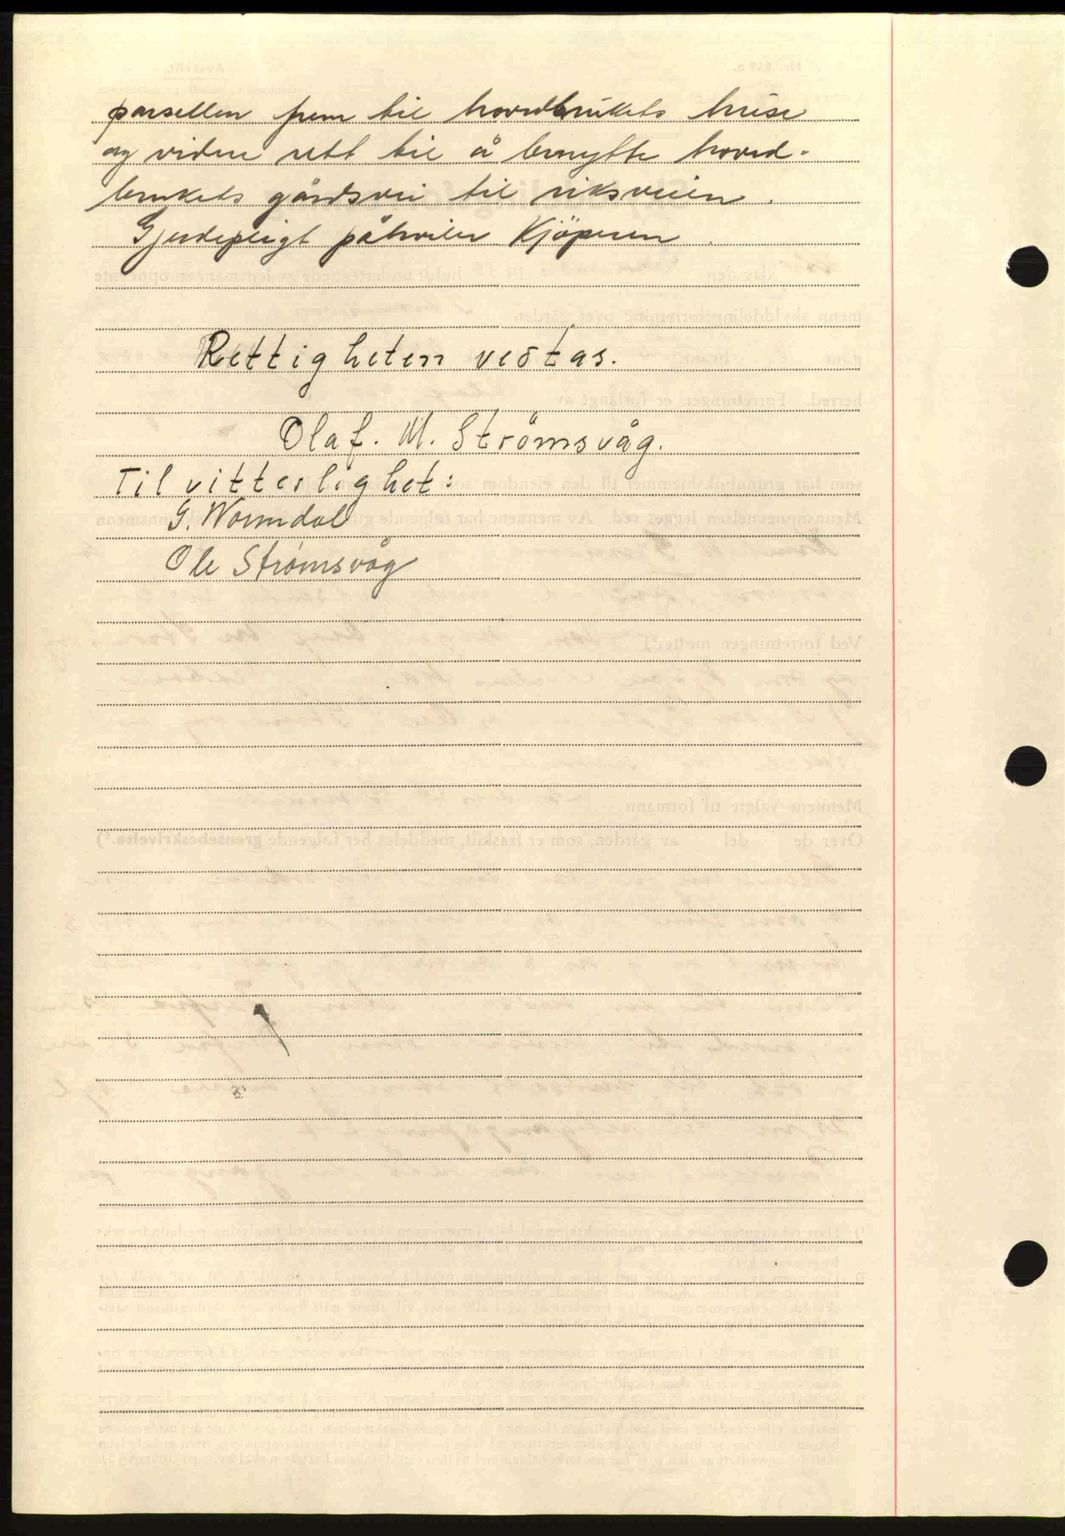 parsellen frem til hovedbrukets huse
og videre rett til å benytte hoved-
brukets gårdsvei til riksveien.
Gjerdepligt påhviler Kjöperen.
Rettigheten vedtas.
Olaf. M. Strömsvåg.
Til vitterlighet:
G. Wormdal
Ole Strømsvåg